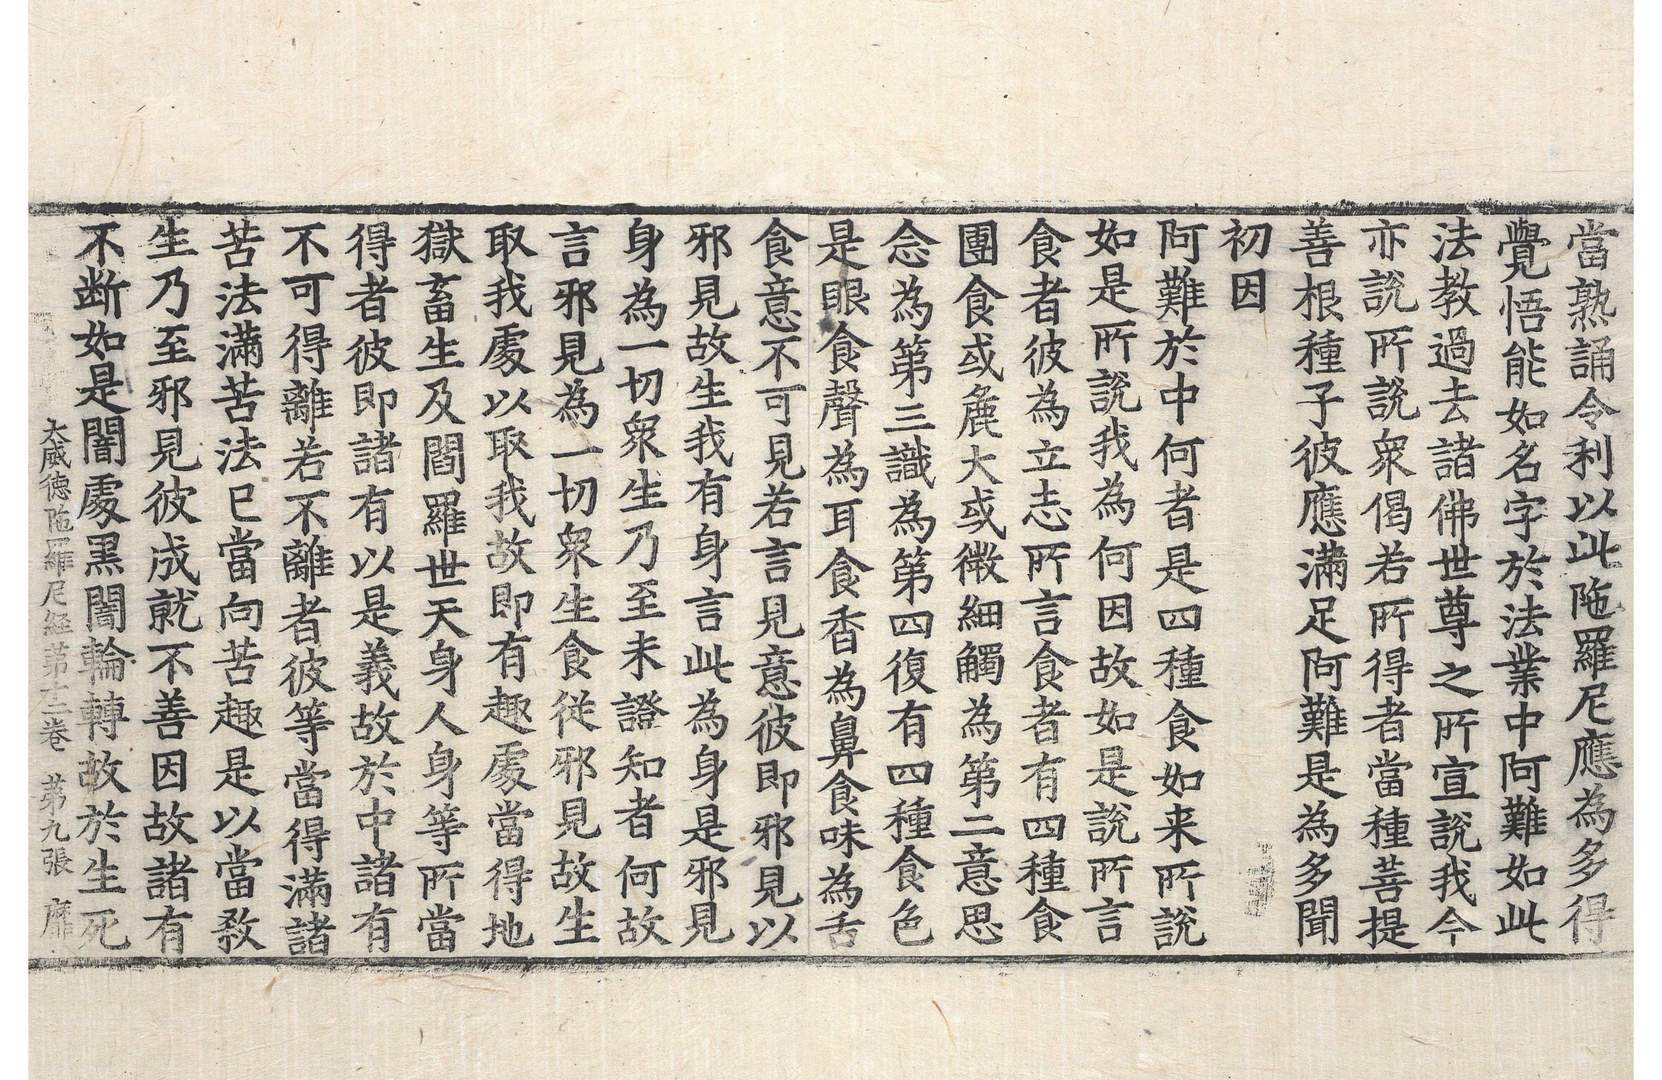 當熟誦令利以此陁羅尼應為多得
覺悟能如名字於法業中阿難如此
法教過去諸佛世尊之所宣說我今
亦說所說衆偈若所得者當種菩提
善根種子彼應滿足阿難是為多聞
初因
阿難於中何者是四種食如来所說
如是所說我為何因故如是說所言
食者彼為立志所言食者有四種食
團食或麁大或微細觸為第二意思
念為第三識為第四復有四種食色
是眼食聲為耳食香為鼻食味為舌
食意不可見若言見意彼即邪見以
邪見故生我有身言此為身是邪見
身為一切衆生乃至未證知者何故
言邪見為一切衆生食從邪見故生
取我處以取我故即有趣處當得地
獄畜生及閻羅世天身人身等所當
得者彼即諸有以是義故於中諸有
不可得離若不離者彼等當得滿諸
苦法滿苦法已當向苦趣是以當教
生乃至邪見彼成就不善因故諸有
不断如是闇處黒闇輪轉故於生死
大威德陁羅尼經第十二卷 第九張 靡